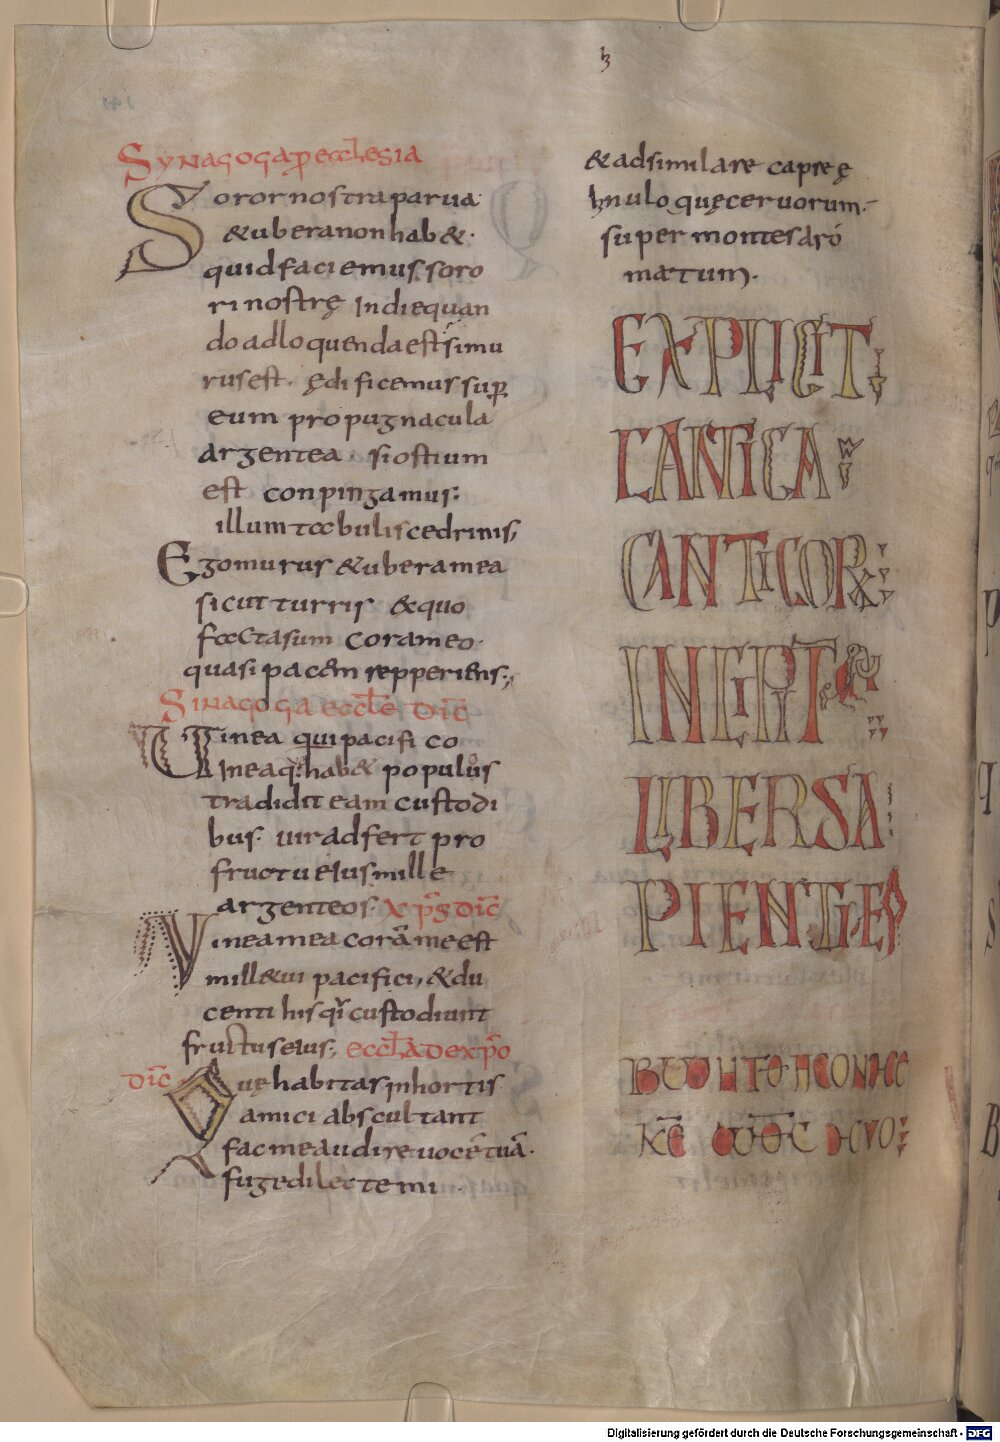 Synagoga p̄ ecclesia
Soror nostra parua
& ubera non hab&·
quid faciemus soro
ri nostrę In die quan
do adloquenda est· simu
rus est· ędificemus sup̱
eum propugnacula
argentea· si ostium
est conpingamus:
illum tabulis cedrinis;
Ego murus & ubera mea
sicut turris & quo
facta sum coram eo·
quasi pacem repperiens:;
Sinagoga eccłe dic̄
Uinea qui pacifico
Inea q: hab& populus
tradidit eam custodi
bus· uir adfert pro
fructu eius mille
argenteos· x̄p̄s dic̄
Uinea mea corā me est
mille tui pacifici, & du
centi his qi custodiunt
fructus eius; eccła de xp̄o
dic̄
Quę habitas in hortis
amici abscultant
fac me audire uocē tuā·
fuge dilecte mi
& adsimilare capreę
hnulo quę ceruorum·
super montes aro
matum·
EXPLICIT
CANTICA
CANTICOR
INCIPIT
LIBER SA
PIENTIAE